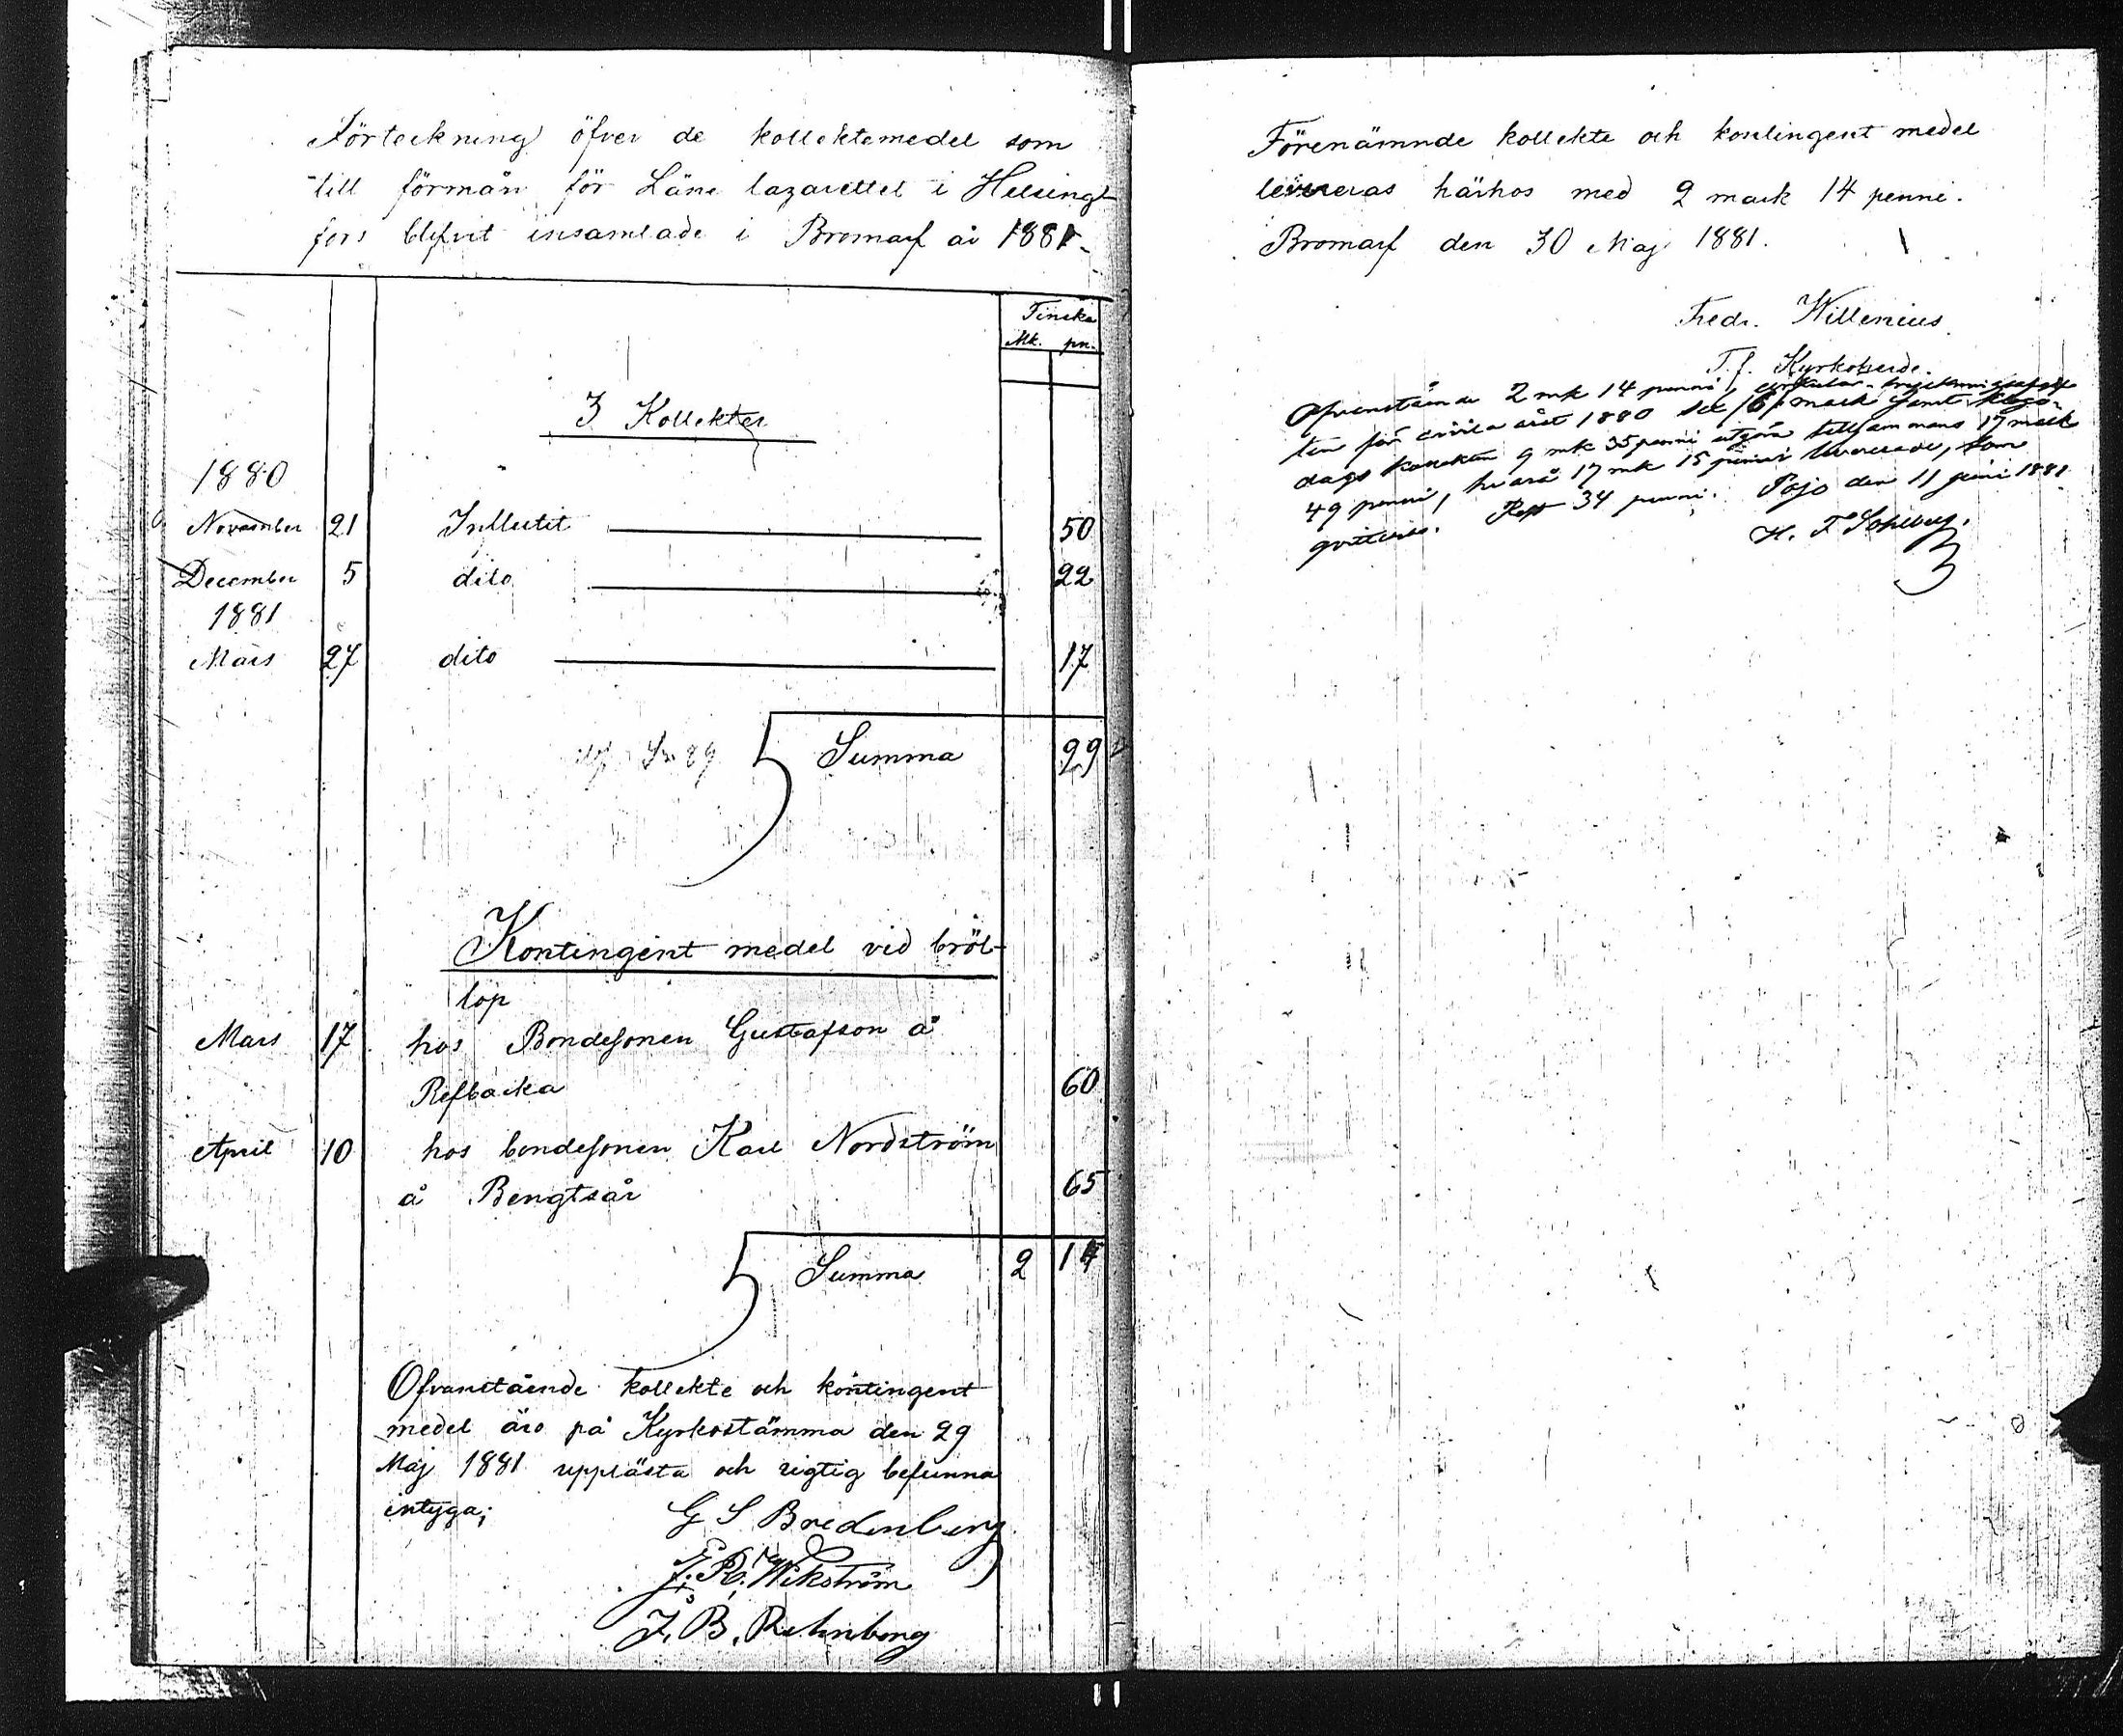 Förteckning öfver de kollektemedel som
till förmån för Läns lazarettet i Helsing-
fors blifvit insamlade i Bromarf år 1881.
Finska
Mk. pn.
3 Kollekter
1880
November 21 Influtit 50
December 5 dito 22
1881
Mars 27 dito 17
Summa 99
Kontingent medel vid bröl-
lop
Mars 17 hos Bondesonen Gustafson å
Refbacka 60
April 10 hos bondesonen Karl Nordström
å Bengtsår 65
Summa 2 14
Ofvanstående kollekte och kontingent
medel äro på Kyrkostämma den 29
Maj 1881 upplästa och rigtig befunna
intyga;
G S Bredenberg
J. R. Wikström
J. B. Rehnberg
Förenämnde kollekte och kontingent medel
levereras härhos med 2 mark 14 penni.
Bromarf den 30 Maj 1881.
Fredr. Willenius
T.f. Kyrkoherde.
Ofvanstående 2 mk 14 penni,
ten för civila året 1880 mark samt
dags kollekten 9 mk 35 penni utgöra tillsammans 17 mark
49 penni, hvarå 17 mk 15 penni levererade, som
qvitteras. Rest 34 penni. Pojo den 11 juni 1881
H. F. Sohlberg.